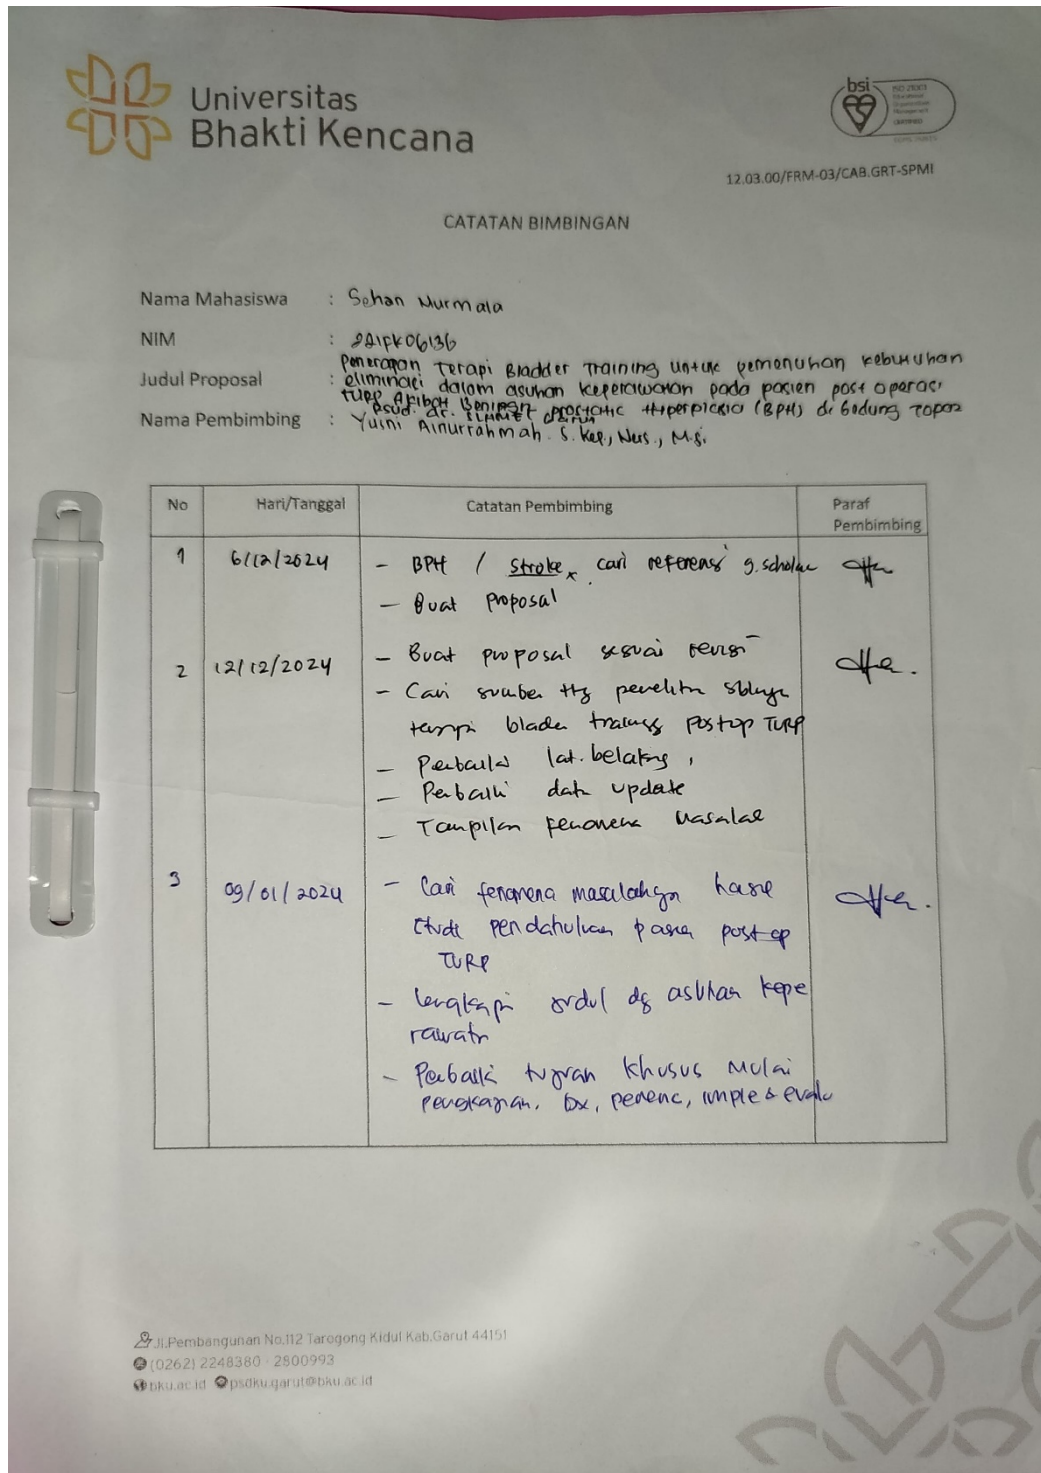 Universitas
Bhakti Kencana
bsi
ISO 21001
CERTIFIED
12.03.00/FRM-03/CAB.GRT-SPMI
CATATAN BIMBINGAN
Nama Mahasiswa : Sehan Nurmala
NIM : 221FK06136
Judul Proposal : Penerapan Terapi Bladder Training untuk pemenuhan kebutuhan
eliminasi dalam asuhan keperawatan pada pasien post operasi
TURP Akibat Benigna prostatic Hyperplasia (BPH) di Gedung Topaz
RSUD. dr. SLAMET GARUT
Nama Pembimbing : Yusni Ainurrahmah. S. Kep., Ners., M.Si.
No Hari/Tanggal Catatan Pembimbing Paraf
Pembimbing
1 6/12/2024 - BPH / Stroke cari referensi g.scholar
- Buat proposal
2 12/12/2024 - Buat proposal sesuai revisi
- Cari sumber ttg penelitn sblmya
terapi blader training postop TURP
- Perbaiki lat.belakng
- Perbaiki data update
- Tampilan fenomena masalah
3 09/01/2024 - Cari fenomena masalahnya hasil
studi pendahuluan pasien post op
TURP
- lengkapi judul dg asuhan kepe
rawatn
- Perbaiki tujuan khusus mulai
pengkajian, Dx, perenc, imple & evalu
Jl.Pembangunan No.112 Tarogong Kidul Kab.Garut 44151
(0262) 2248380 - 2800993
bku.ac.id psdku.garut@bku.ac.id